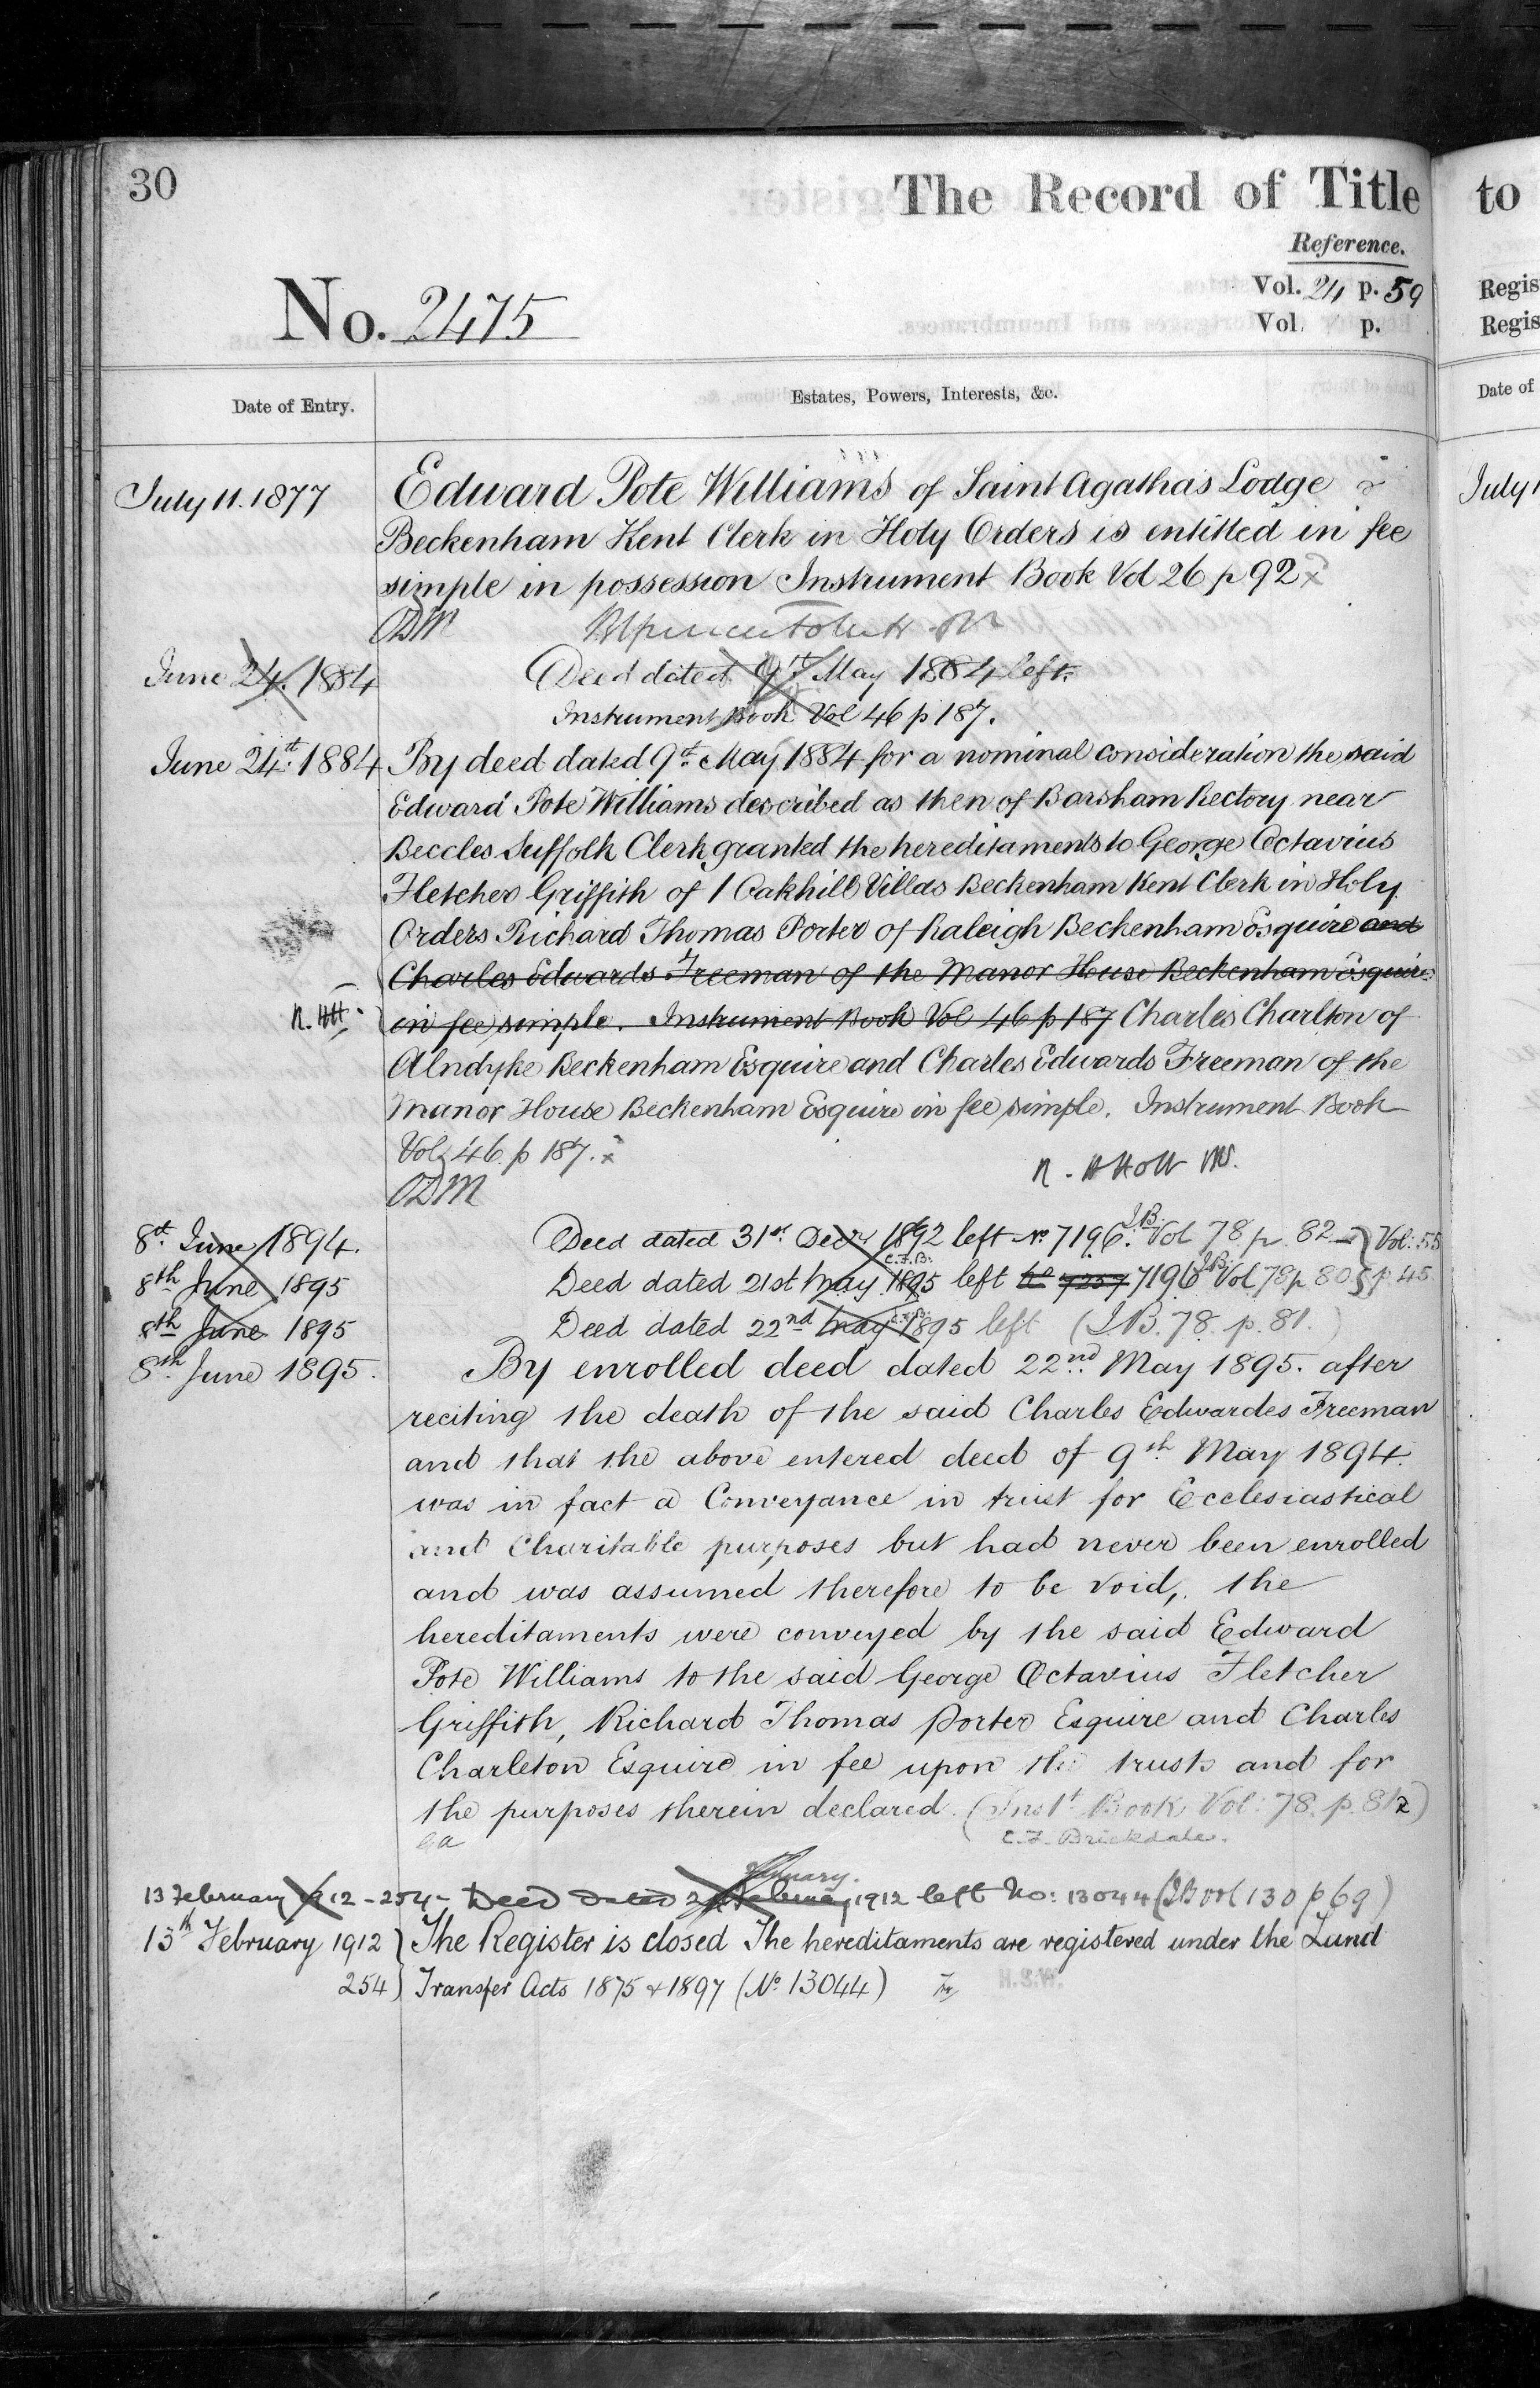 30
The Record of Title
to
Reference.
Vol. 24 p. 59
Vol. p.
Regis
Regis
No. 2475
Date of Entry.
Estates, Powers, Interests, &c.
Date of
July 11. 1877
Edward Pote Williams of Saint Agatha's Lodge
July 1
Beckenham Kent Clerk in Holy Orders is entitled in fee
simple in possession Instrument Book Vol 26 p 92 x
ODM
June 24. 1884
Deed dated 9th May 1884 left.
Instrument Book Vol 46 p 187.
June 24th. 1884
By deed dated 9th May 1884 for a nominal consideration the said
Edward Pote Williams described as then of Barsham Rectory near
Beccles Suffolk Clerk granted the hereditaments to George Octavius
Fletcher Griffith of 1 Oakhill Villas Beckenham Kent Clerk in Holy
Orders Richard Thomas Porter of Raleigh Beckenham Esquire and
Charles Edwards Freeman of the Manor House Beckenham Esquire
in fee simple. Instrument Book Vol 46 p 187 Charles Charlton of
Alndyke Beckenham Esquire and Charles Edwards Freeman of the
Manor House Beckenham Esquire in fee simple. Instrument Book
Vol 46 p 187. x
ODM
8th. June 1894.
Deed dated 31st. Decr 1892 left No 7196. I.B. Vol 78 p. 82 } Vol: 55
8th June 1895
Deed dated 21st May 1895 C.F.B. left No 7257 7196 I.B. Vol 78 p 80 } p. 45
8th June 1895
Deed dated 22nd May 1895 left (I.B. 78. p. 81.)
8th. June 1895.
By enrolled deed dated 22nd. May 1895. after
reciting the death of the said Charles Edwardes Freeman
and that the above entered deed of 9th. May 1894.
was in fact a Conveyance in trust for Ecclesiastical
and Charitable purposes but had never been enrolled
and was assumed therefore to be void, the
hereditaments were conveyed by the said Edward
Pote Williams to the said George Octavius Fletcher
Griffith, Richard Thomas Porter Esquire and Charles
Charleton Esquire in fee upon the trusts and for
the purposes therein declared. (Inst. Book Vol: 78. p. 81)
C.F. Brickdale.
13 February 1912 - 254 - Deed dated 2 February 1912 left No: 13044 (IB Vol 130 p 69)
13th February 1912 } The Register is closed The hereditaments are registered under the Land
254 ) Transfer Acts 1875 & 1897 (No 13044)
H.S.W.